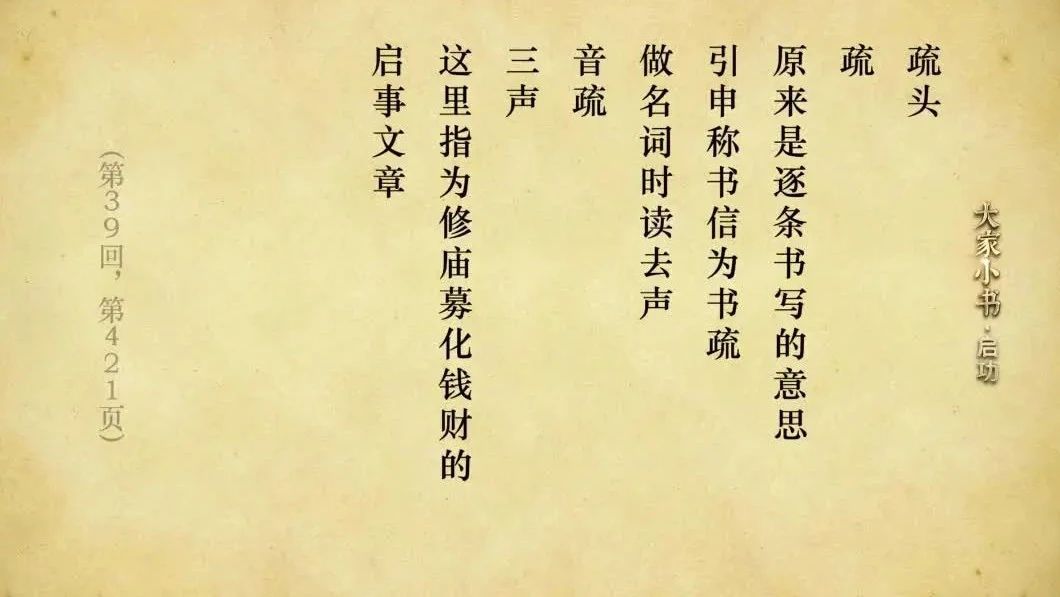 疏头
疏
原来是逐条书写的意思
引申称书信为书疏
做名词时读去声
音疏
三声
这里指为修庙募化钱财的
启事文章
（第39回，第421页）
大家小书·启功